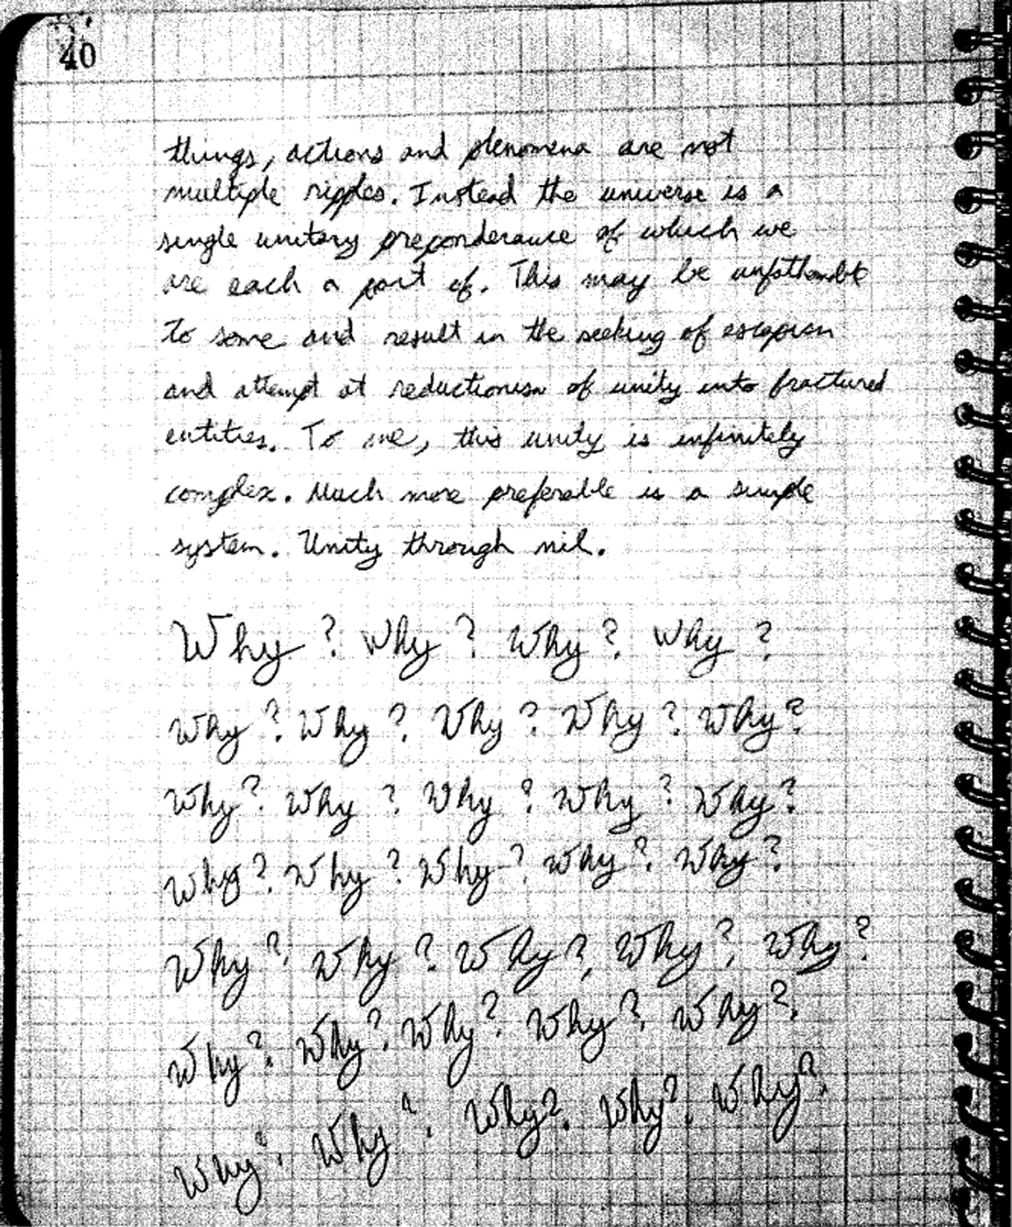 40
things, actions and phenomena are not
multiple ripples. Instead the universe is a
single unitary preponderance of which we
are each a part of. This may be unfathomable
to some and result in the seeking of escapism
and attempt at reductionism of unity into fractured
entities. To me, this unity is infinitely
complex. Much more preferable is a simple
system. Unity through nil.
Why? Why? Why? Why?
Why? Why? Why? Why? Why?
Why? Why? Why? Why? Why?
Why? Why? Why? Why? Why?
Why? Why? Why? Why? Why?
Why? Why? Why? Why? Why?
Why? Why? Why? Why? Why?